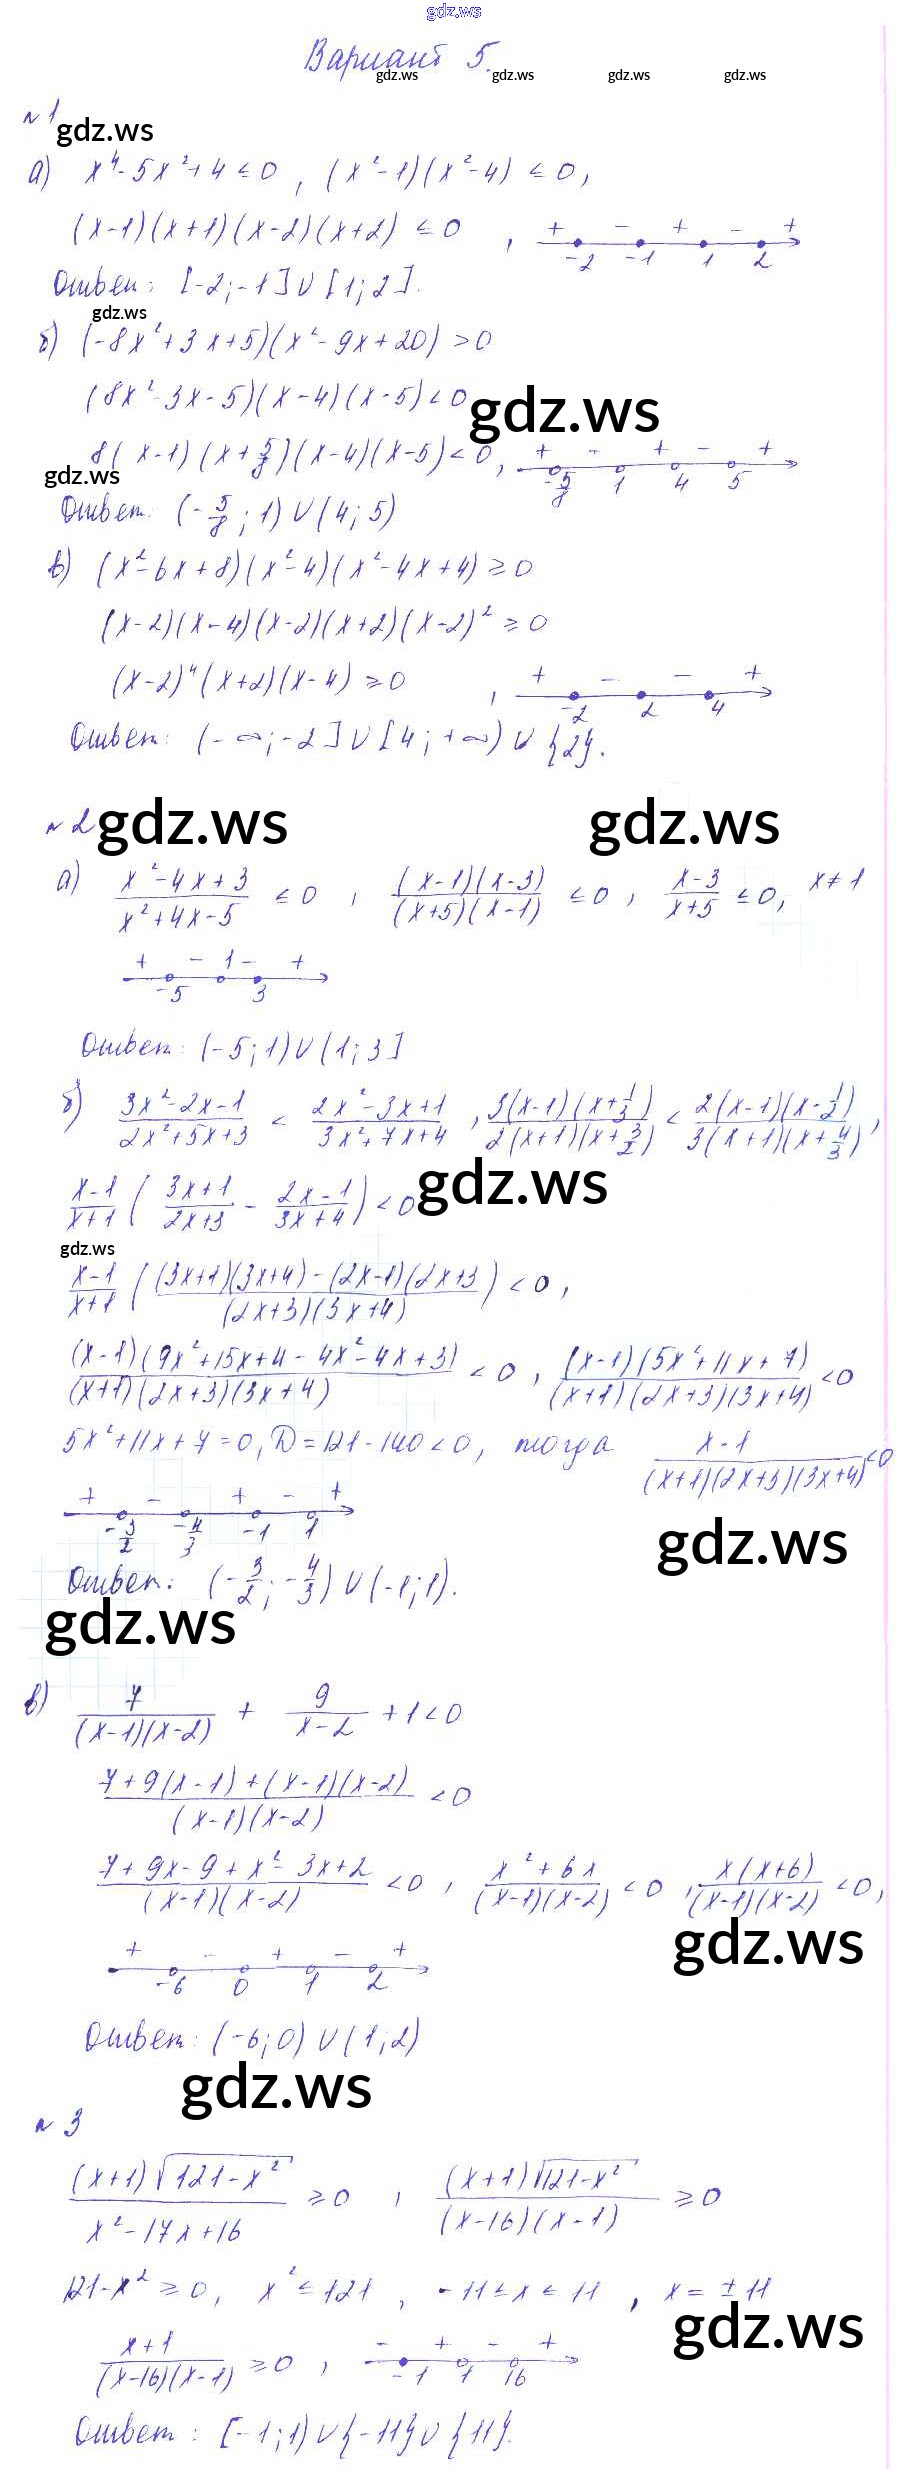 gdz.ws
Вариант 5.
gdz.ws gdz.ws gdz.ws gdz.ws
№1
gdz.ws
а) x⁴-5x²+4≤0, (x²-1)(x²-4)≤0,
(x-1)(x+1)(x-2)(x+2)≤0, + - + - +
-2 -1 1 2
Ответ: [-2;-1]∪[1;2].
gdz.ws
б) (-8x²+3x+5)(x²-9x+20)>0
(8x²-3x-5)(x-4)(x-5)<0
gdz.ws
8(x-1)(x+5/8)(x-4)(x-5)<0, + - + - +
gdz.ws
-5/8 1 4 5
Ответ: (-5/8;1)∪(4;5)
в) (x²-6x+8)(x²-4)(x²-4x+4)≥0
(x-2)(x-4)(x-2)(x+2)(x-2)²≥0
(x-2)⁴(x+2)(x-4)≥0, + - - +
-2 2 4
Ответ: (-∞;-2]∪[4;+∞)∪{2}.
№2
gdz.ws gdz.ws
а) (x²-4x+3)/(x²+4x-5) ≤0, ((x-1)(x-3))/((x+5)(x-1)) ≤0, (x-3)/(x+5) ≤0, x≠1
+ - 1 - +
-5 3
Ответ: (-5;1)∪(1;3]
б) (3x²-2x-1)/(2x²+5x+3) < (2x²-3x+1)/(3x²+7x+4), (3(x-1)(x+1/3))/(2(x+1)(x+3/2)) < (2(x-1)(x-1/2))/(3(x+1)(x+4/3)),
gdz.ws
(x-1)/(x+1) ((3x+1)/(2x+3) - (2x-1)/(3x+4)) <0
gdz.ws
(x-1)/(x+1) ((3x+1)(3x+4)-(2x-1)(2x+3)/(2x+3)(3x+4)) <0,
((x-1)(9x²+15x+4-4x²-4x+3))/((x+1)(2x+3)(3x+4)) <0, ((x-1)(5x²+11x+7))/((x+1)(2x+3)(3x+4)) <0
5x²+11x+7=0, D=121-140<0, тогда (x-1)/((x+1)(2x+3)(3x+4)) <0
+ - + - +
-3/2 -4/3 -1 1
gdz.ws
Ответ: (-3/2;-4/3)∪(-1;1).
gdz.ws
в) 7/((x-1)(x-2)) + 9/(x-2) +1<0
(7+9(x-1)+(x-1)(x-2))/((x-1)(x-2)) <0
(7+9x-9+x²-3x+2)/((x-1)(x-2)) <0, (x²+6x)/((x-1)(x-2)) <0, (x(x+6))/((x-1)(x-2)) <0,
gdz.ws
+ - + - +
-6 0 1 2
Ответ: (-6;0)∪(1;2)
gdz.ws
№3
((x+1)√(121-x²))/(x²-17x+16) ≥0, ((x+1)√(121-x²))/((x-16)(x-1)) ≥0
121-x²≥0, x²≤121, -11≤x≤11, x=±11
gdz.ws
(x+1)/((x-16)(x-1)) ≥0, - + - +
-1 1 16
Ответ: [-1;1)∪{-11}∪{11}.